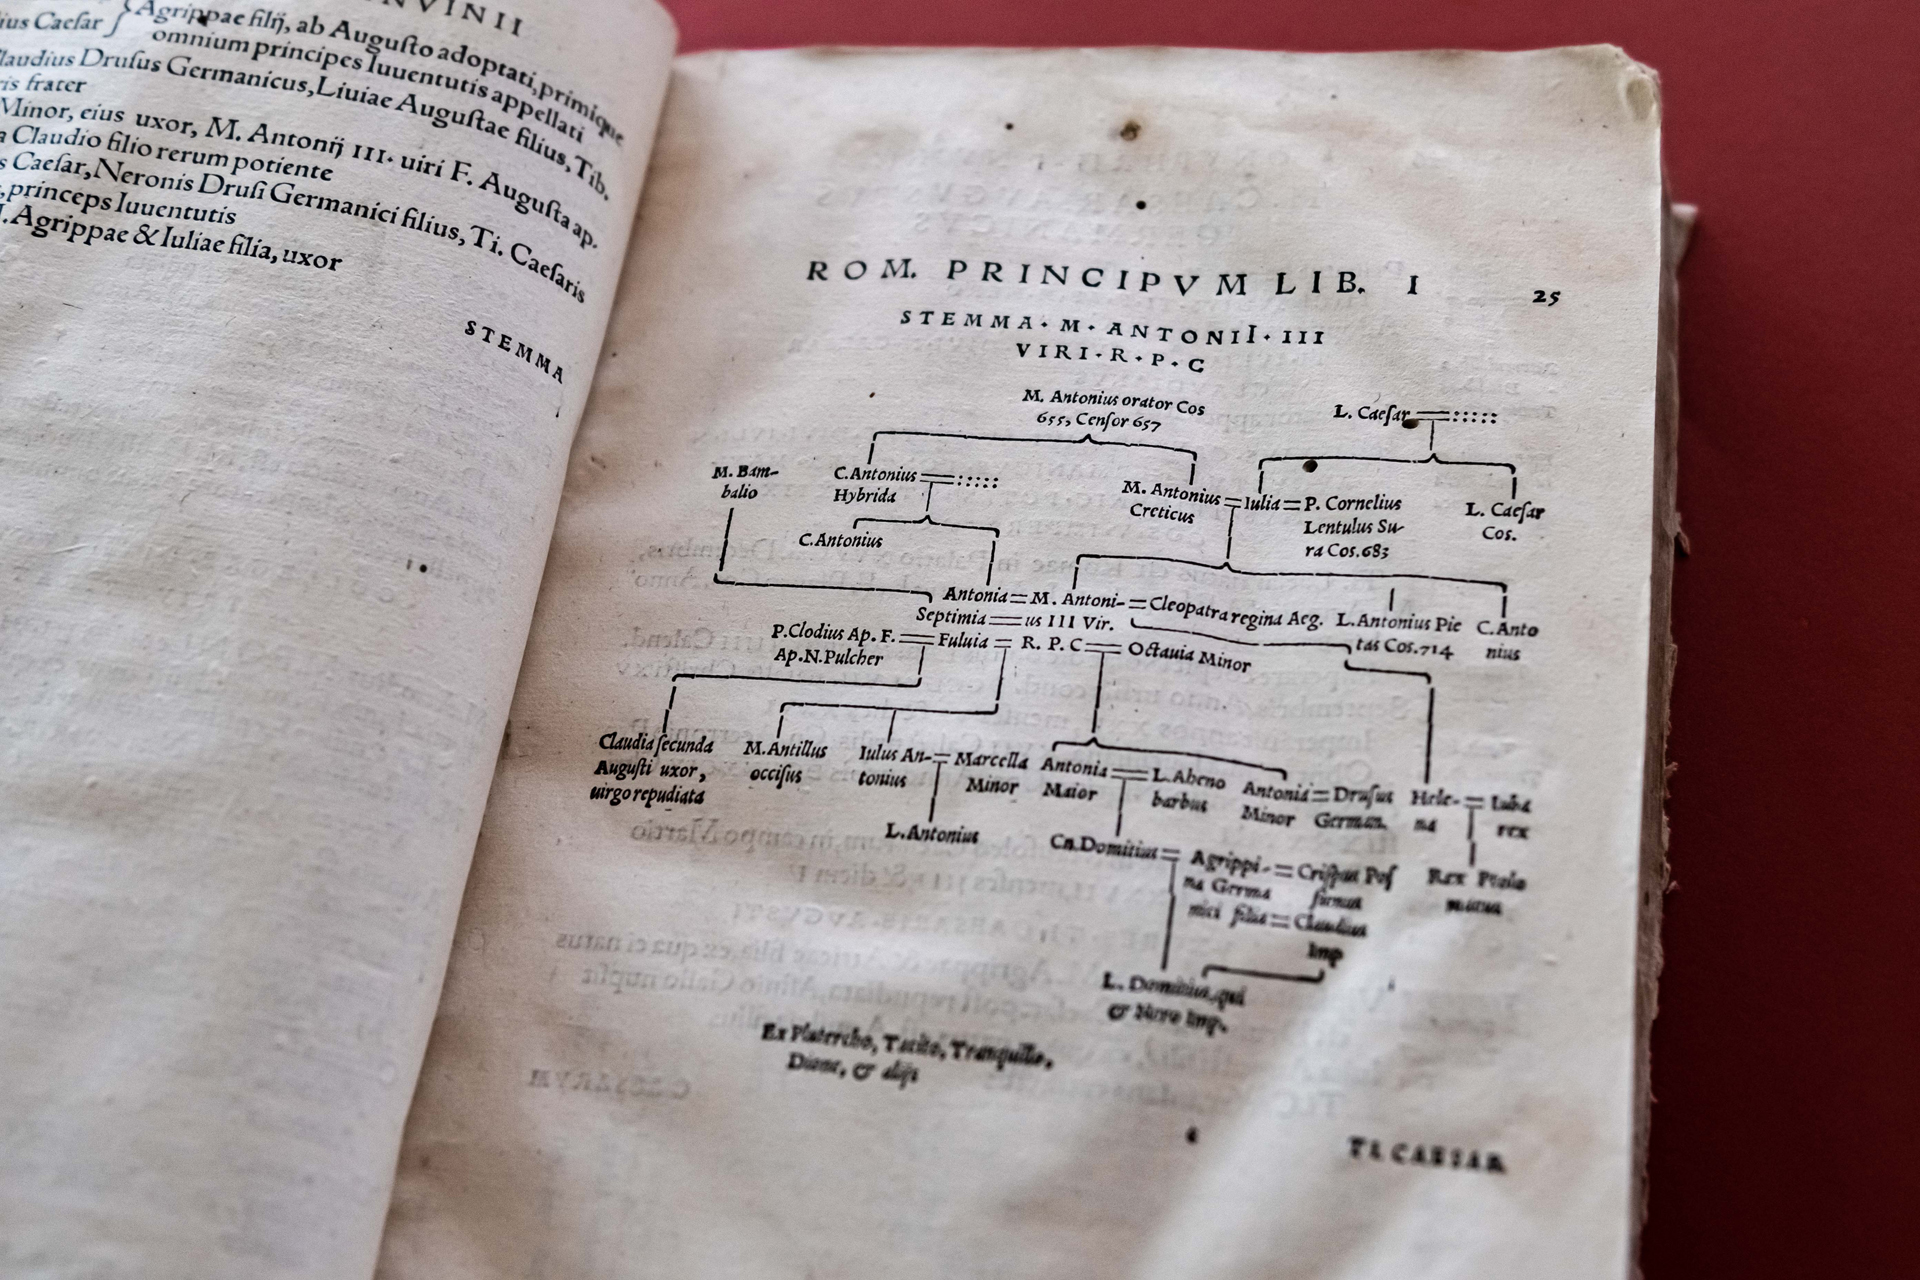 NVINII
ius Caeſar Agrippae filij, ab Auguſto adoptati, primique
omnium principes Iuuentutis appellati
laudius Druſus Germanicus, Liuiae Auguſtae filius, Tib.
ris frater
Minor, eius uxor, M. Antonij III. uiri F. Auguſta ap.
a Claudio filio rerum potiente
s Caeſar, Neronis Druſi Germanici filius, Ti. Caeſaris
, princeps Iuuentutis
. Agrippae & Iuliae filia, uxor
STEMMA
ROM. PRINCIPVM LIB. I 25
STEMMA · M · ANTONII · III
VIRI · R · P · C
M. Antonius orator Cos
655, Cenſor 657
L. Caeſar
M. Bam-
balio
C. Antonius
Hybrida
M. Antonius
Creticus
Iulia
P. Cornelius
Lentulus Su-
ra Cos. 683
L. Caeſar
Cos.
C. Antonius
Antonia = M. Antoni- = Cleopatra regina Aeg.
L. Antonius Pie
tas Cos. 714
C. Anto
nius
Septimia = us III Vir.
P. Clodius Ap. F. = Fuluia = R. P. C = Octauia Minor
Ap. N. Pulcher
Claudia ſecunda
Auguſti uxor,
uirgo repudiata
M. Antillus
occiſus
Iulus An-
tonius
Marcella
Minor
Antonia
Maior
L. Aheno
barbus
Antonia
Minor
Druſus
German.
Hele-
na
Iuba
rex
L. Antonius
Cn. Domitius
Agrippi-
na Germa
nici filia
Criſpus Paſ
Claudius
Imp
Rex Ptolo
L. Domitius, qui
& Nero Imp.
Ex Plutarcho, Tacito, Tranquillo,
Dione, & alijs
TI. CAESAR